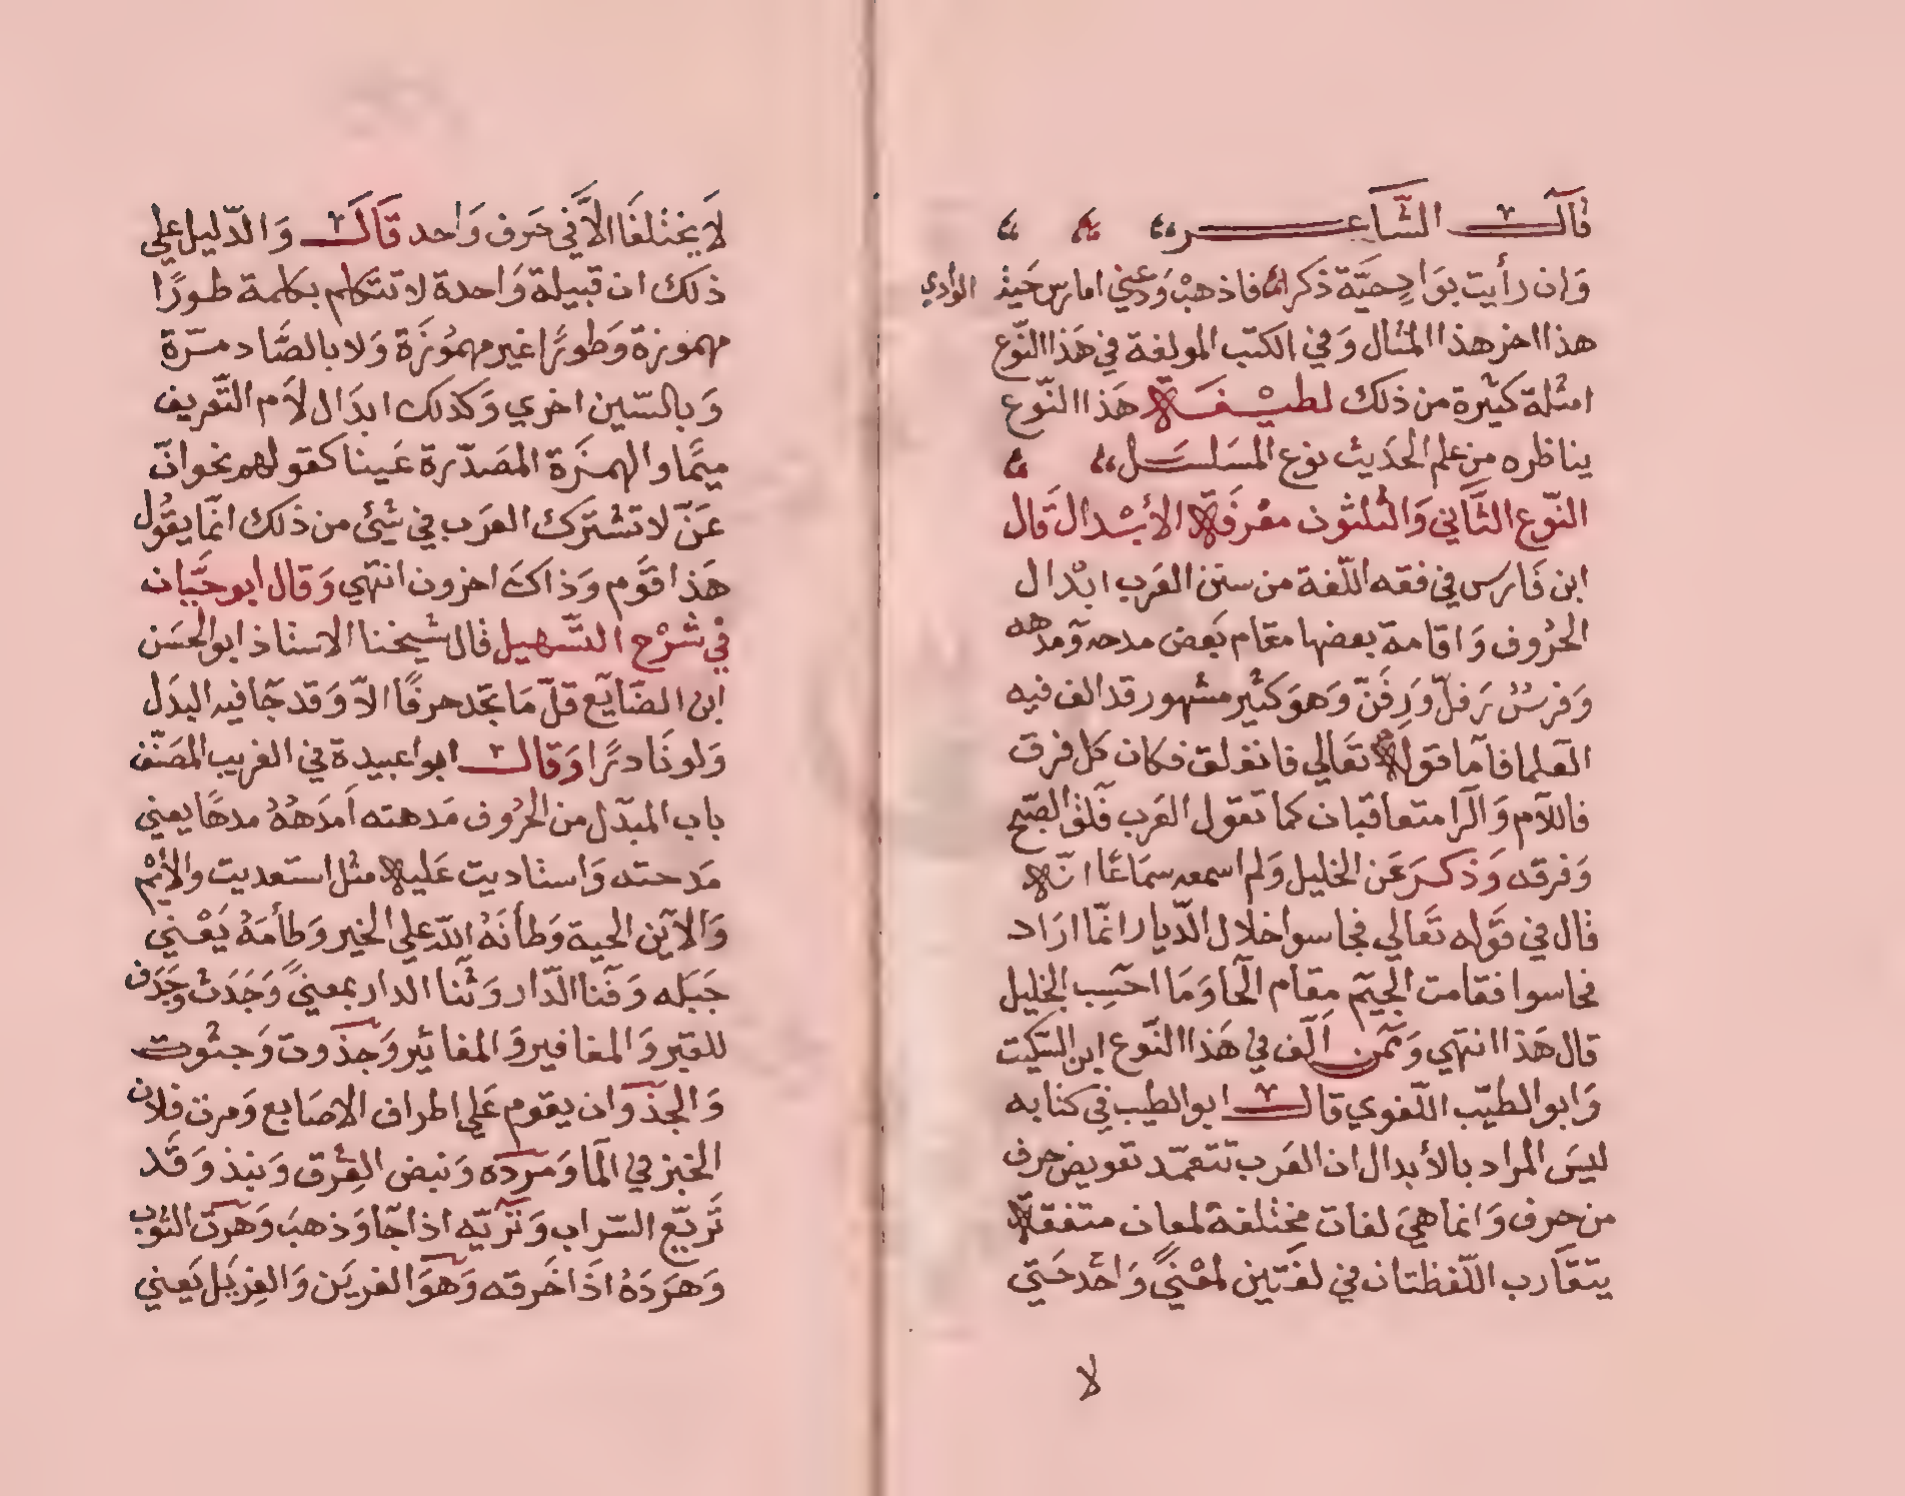 قال الشاعر
وان رأيت بواد حية ذكرا فاذهب ودعني امارس حية الوادي
هذا اخر هذا المثال وفي الكتب المولفة في هذا النوع
امثلة كثيرة من ذلك لطيفة هذا النوع
يناظره من علم الحديث نوع المسلسل
النوع الثاني والثلثون معرفة الأبدال قال
ابن فارس في فقه اللغة من سنن العرب ابدال
الحروف واقامة بعضها مقام بعض مدحه ومدهه
وفرس رفل ورفن وهو كثير مشهور قد الف فيه
العلما فاما قوله تعالي فانفلق فكان كل فرق
فاللام والرا متعاقبان كما تقول العرب فلق الصبح
وفرقه وذكر عن الخليل ولم اسمعه سماعا انه
قال في قوله تعالي فجاسوا خلال الديار انما اراد
فحاسوا فقامت الجيم مقام الحا وما احسب الخليل
قال هذا انتهي وممن الف في هذا النوع ابن السكيت
وابو الطيب اللغوي قال ابو الطيب في كتابه
ليس المراد بالأبدال ان العرب تتعمد تعويض حرف
من حرف وانما هي لغات مختلفة لمعان متفقة
يتقارب اللفظتان في لغتين لمعني واحد حتي
لا
لا يختلفا الا في حرف واحد قال والدليل علي
ذلك ان قبيلة واحدة لا تتكلم بكلمة طورا
مهموزة وطورا غير مهموزة ولا بالصاد مرة
وبالسين اخري وكذلك ابدال لام التعريف
ميما والهمزة المصدرة عينا كقولهم نحو ان
عن لا تشترك العرب في شئ من ذلك انما يقول
هذا قوم وذاك اخرون انتهي وقال ابو حيان
في شرح التسهيل قال شيخنا الاستاذ ابو الحسن
ابن الضايع قل ما تجد حرفا الا وقد جا فيه البدل
ولو نادرا وقال ابو اعبيدة في الغريب المصنف
باب المبدل من الحروف مدهته امدهه مدها يعني
مدحته واستاديت عليه مثل استعديت والأيم
والاين الحية وطأنه الله علي الخير وطأمه يعني
جبله وفنا الدار وثنا الدار بمعني وجدث وجدف
للقبر والمغافير والمغاثير وجذوت وجثوت
والجذو ان يقوم علي اطراف الاصابع ومرت فلان
الخبز في الما ومرده ونبض العرق ونبذ وقد
تريع السراب وتريه اذا جا وذهب وهرت الثوب
وهرده اذا خرقه وهو الغرين والغريل يعني